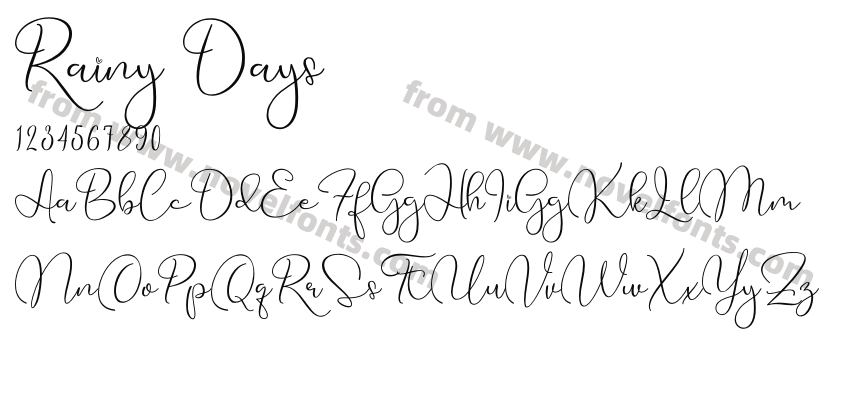 Rainy Days
1234567890
AaBbCcDdEe FfGgHhIiGgKkLlMm
NnOoPpQqRrSsTtUuVvWwXxYyZz
from www.novelfonts.com
from www.novelfonts.com